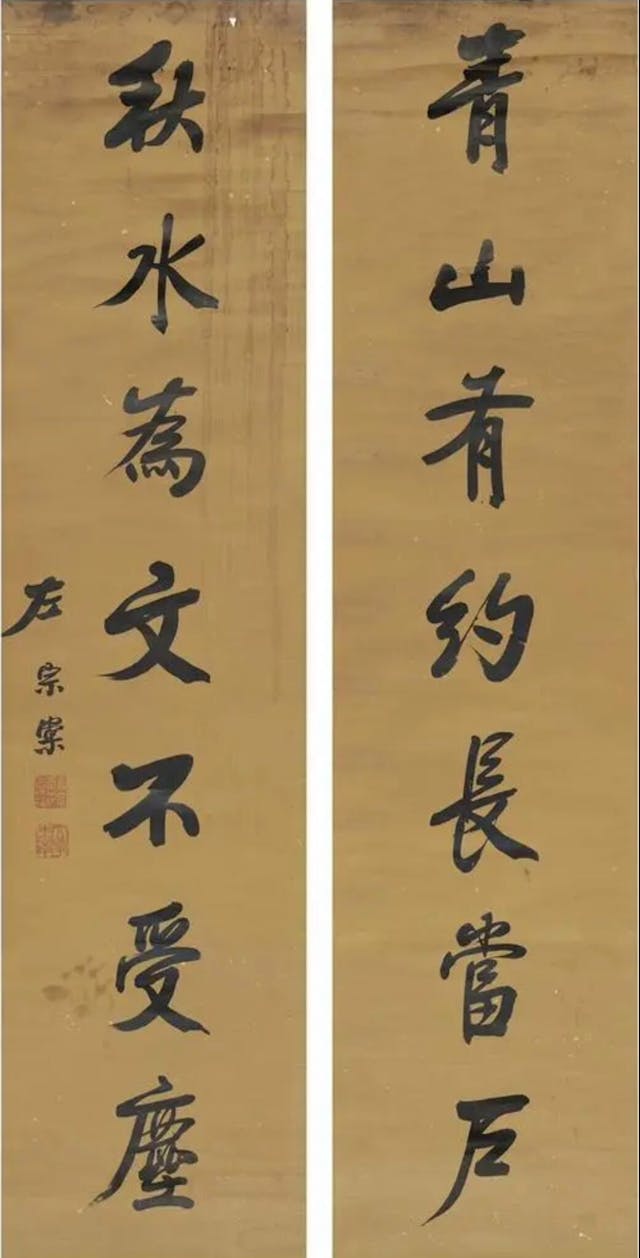 青山有約長當戶
秋水為文不受塵
左宗棠